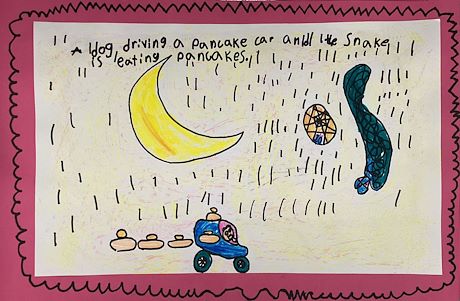 A dog driving a pancake car and the snake
is eating pancakes.